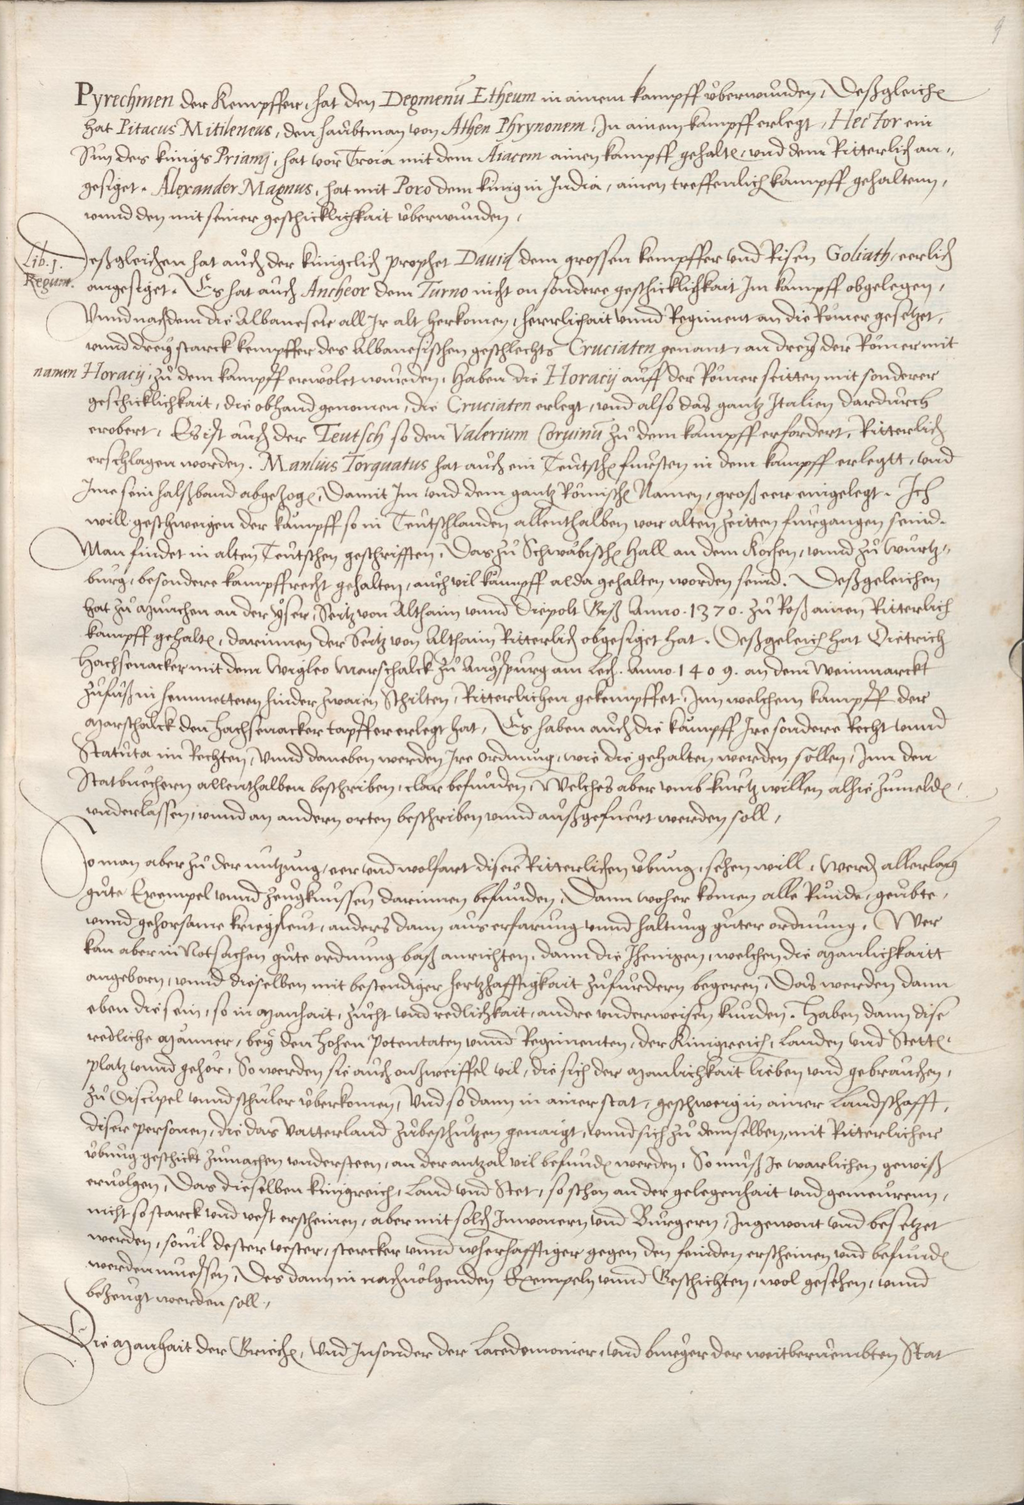 9
Pyrechmen der Kempffer, hat den Degmenū Etheum in ainem kampff vberwunden, Deßgleichē
hat Pitacus Mitileneus, den haubtman von Athen Phrynonem, In ainem kampff erlegt, Hector ein
Sun des künigs Priamj, hat vor Troia mit dem Aiacem ainen kampff gehaltē, vnd dem Ritterlich an-
gesiget. Alexander Magnus, hat mit Poro dem künig in India, ainen treffenlichē kampff gehaltenn,
vnnd den mit seiner geschicklichkait vberwunden,
Lib. 1. Regum.
Deßgleichen hat auch der küniglich prophet Dauid dem grossen kempffer vnd Risen Goliath, eerlich
angesiget. Es hat auch Ancheor dem Turno nicht on sondere geschicklichkait Im kampff obgelegen,
Vnnd nachdem die Albaneser all Jr alt herkomen, herrlichait vnnd Regiment an die Römer gesetzet,
vnnd dreÿ starck kempffer des Albanesischen geschlechts Cruciaten genant, an dreÿ der Römer mit
namen Horacij, zu dem kampff erwölet wurden, Haben die Horacij auff der Römer seitten mit sonderer
geschicklichkait, die obhand genomen, die Cruciaten erlegt, vnd also das gantz Italien dardurch
erobert, Es ist auch der Teutsch so den Valerium Coruinū zu dem kampff erfordert, Ritterlich
erschlagen worden. Manlius Torquatus hat auch ein Teutschē fursten in dem kampff erlegtt, vnd
Ime sein halßband abgezogē, Damit Im vnd dem gantz Römischē Namen, groß eer eingelegt. Ich
will geschweigen der kämpff so in Teutschlanden allenthalben vor alten zeitten furgangen seind.
Man findet in alten Teutschen geschrifften, Das zu Schwäbischē Hall an dem Kochen, vnnd zu Wurtz-
burg, besondere kampffrecht gehalten, auch vil kämpff alda gehalten worden seind. Deßgeleichen
hat zu München an der Yser, Seitz von Althaim vnnd Diepolt Geß Anno. 1370. zu Roß ainen Ritterlich
kampff gehaltē, darinnen der Seitz von Althaim Ritterlich obgesiget hat. Deßgeleich hat Dietrich
Hachsenacker mit dem Wigleo Marschalck zu Augspurg am Lech. Anno. 1409. an dem Weinmarckt
zufuß in hemmettern hinder zwaien Schilten, Ritterlichen gekempffet, Inn welchem kampff der
Marschalck den Hachsenacker tapffer erlegt hat, Es haben auch die kämpff Ire sondere Recht vnnd
Statuta im Rechten, vnnd daneben werden Ire ordnung, wie die gehalten werden sollen, Inn den
Statbuechern allenthalben beschriben, clar befunden, Welches aber vmb kurtz willen alhie zumeldē,
vnderlassen, vnnd an andern orten beschriben vnnd außgefuert werden soll,
So man aber zu der nutzung, eer vnd wolfart diser Ritterlichen vbung, sehen will, Werdē allerlaÿ
gute Exempel vnnd zeugknussen darinnen befunden, Dann woher komen alle Runde, geubte,
vnnd gehorsame kriegsleut, anders dann aus erfarung vnnd haltung guter ordnung, Wer
kan aber in Notsachen gute ordnung baß anrichten, dann die Jhenigen, welchen die Manlichkaitt
angeborn, vnnd dieselben mit bestendiger hertzhafftigkait zufurdern begeren, Das werden dann
eben die sein, so in Manhait, zucht vnd redlichkait, andre vnderweisen kunden. Haben dann dise
redliche Männer, beÿ den hohen Potentaten vnnd Regimenten, der Künigreich, Landen vnd Stettē,
platz vnnd gehör, So werden sie auch on zweiffel vil, die sich der Manlichkait lieben vnd gebrauchen,
zu Discipel vnnd schuler vberkomen, Vnd so dann in ainer stat, geschweig in ainer Landschafft,
diser personen, die das vatterland zubeschutzen genaigt, vnnd sich zu demselben mit Ritterlicher
vbung geschickt zumachen vndersteen, an der antzal vil befundē werden, So muß Je warlichen gewiß
eruolgen, Das dieselben künigreich, Land vnd Stet, so schon an der gelegenhait vnd gemeurenn,
nicht so starck vnd vest erscheinen, aber mit solch Inwonern vnd Burgern, Ingewont vnd besetzet
werden, souil dester vester, stercker vnnd wherhafftiger gegen den feinden erscheinen vnd befundē
werden muessen, Des dann in nachuolgenden Exempeln vnnd Geschichten, wol gesehen, vnnd
bezeugt werden soll,
Die Manhait der Griechē, vnd Insonder der Lacedemonier, vnd burger der weitberuembten Stat